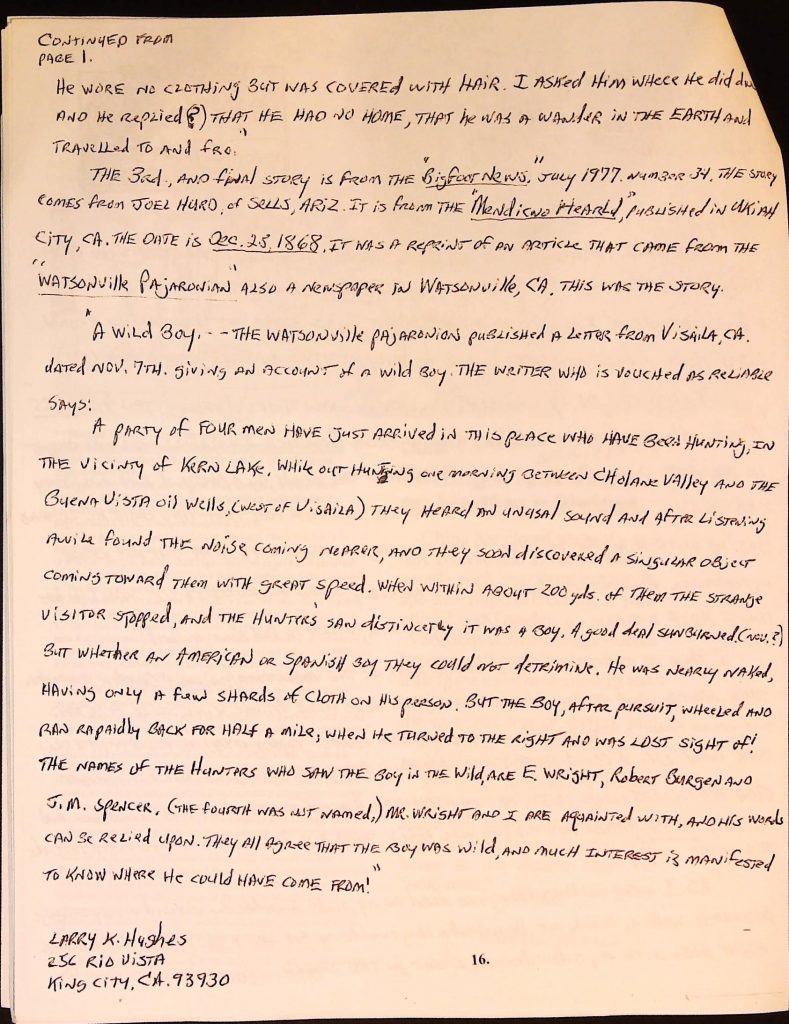 CONTINUED FROM
PAGE 1.
He WORE NO CLOTHING BUT WAS COVERED WITH HAIR. I ASKED HIM WHERE He did
AND He REPLIED (?) THAT HE HAD NO HOME, THAT he WAS A WANDER IN THE EARTH AND
TRAVELLED TO AND fro."
THE 3rd., AND final STORY IS FROM THE "Bigfoot News," July 1977. Number 34. THE STORY
COMES FROM JOEL HURD, of SELLS, ARIZ. IT IS FROM THE "Mendicno Hearld," PUBLISHED IN UKIAH
CITY, CA. THE DATE IS Dec. 25, 1868. IT WAS A REPRINT OF AN ARTICLE THAT CAME FROM THE
"WATSONville PAJARONIAN" ALSO A NEWSPAPER IN WATSONVille, CA. THIS WAS THE STORY.
"A WILD BOY. - - THE WATSONVille PAJARONION published A LETTER FROM VISAILA, CA.
dated NOV. 7TH. giving AN ACCOUNT of a Wild Boy. THE WRITER WHO is VOUCHED AS RELIABLE
SAYS:
A PARTY OF FOUR MEN HAVE JUST ARRIVED IN THIS PLACE WHO HAVE BEEN HUNTING, IN
THE VICINTY OF KERN LAKE. WHILE OUT HUNTING ONE MORNING BETWEEN CHOLANE VALLEY AND THE
BUENA VISTA OIL WELLS, (WEST OF VISAILA) THEY HEARD AN UNUSAL SOUND AND AFTER LISTENING
AWILE FOUND THE NOISE COMING NEARER, AND THEY SOON DISCOVERED A SINGULAR OBJECT
COMING TOWARD THEM WITH GREAT SPEED. WHEN WITHIN ABOUT 200 yds. of THEM THE STRANGE
VISITOR STOPPED, AND THE HUNTER'S SAW DISTINCETLY IT WAS A BOY. A good deal SUNBURNED. (NOV.?)
BUT WHETHER AN AMERICAN OR SPANISH BOY THEY COULD NOT DETRIMINE. HE WAS NEARLY NAKED,
HAVING ONLY A FEW SHARDS OF CLOTH ON HIS PERSON. BUT THE BOY, AFTER PURSUIT, WHEELED AND
RAN RAPAIDLY BACK FOR HALF A MILE; WHEN HE TURNED TO THE RIGHT AND WAS LOST SIGHT OF!
THE NAMES OF THE HUNTERS WHO SAW THE BOY IN THE WILD, ARE E. WRIGHT, ROBERT BURGEN AND
J.M. SPENCER. (THE FOURTH WAS NOT NAMED.) MR. WRIGHT AND I ARE AQUAINTED WITH, AND HIS WORDS
CAN BE RELIED UPON. THEY ALL AGREE THAT THE BOY WAS WILD, AND MUCH INTEREST IS MANIFESTED
TO KNOW WHERE HE COULD HAVE COME FROM!"
LARRY K. Hughes
256 RIO VISTA
KING CITY, CA. 93930
16.